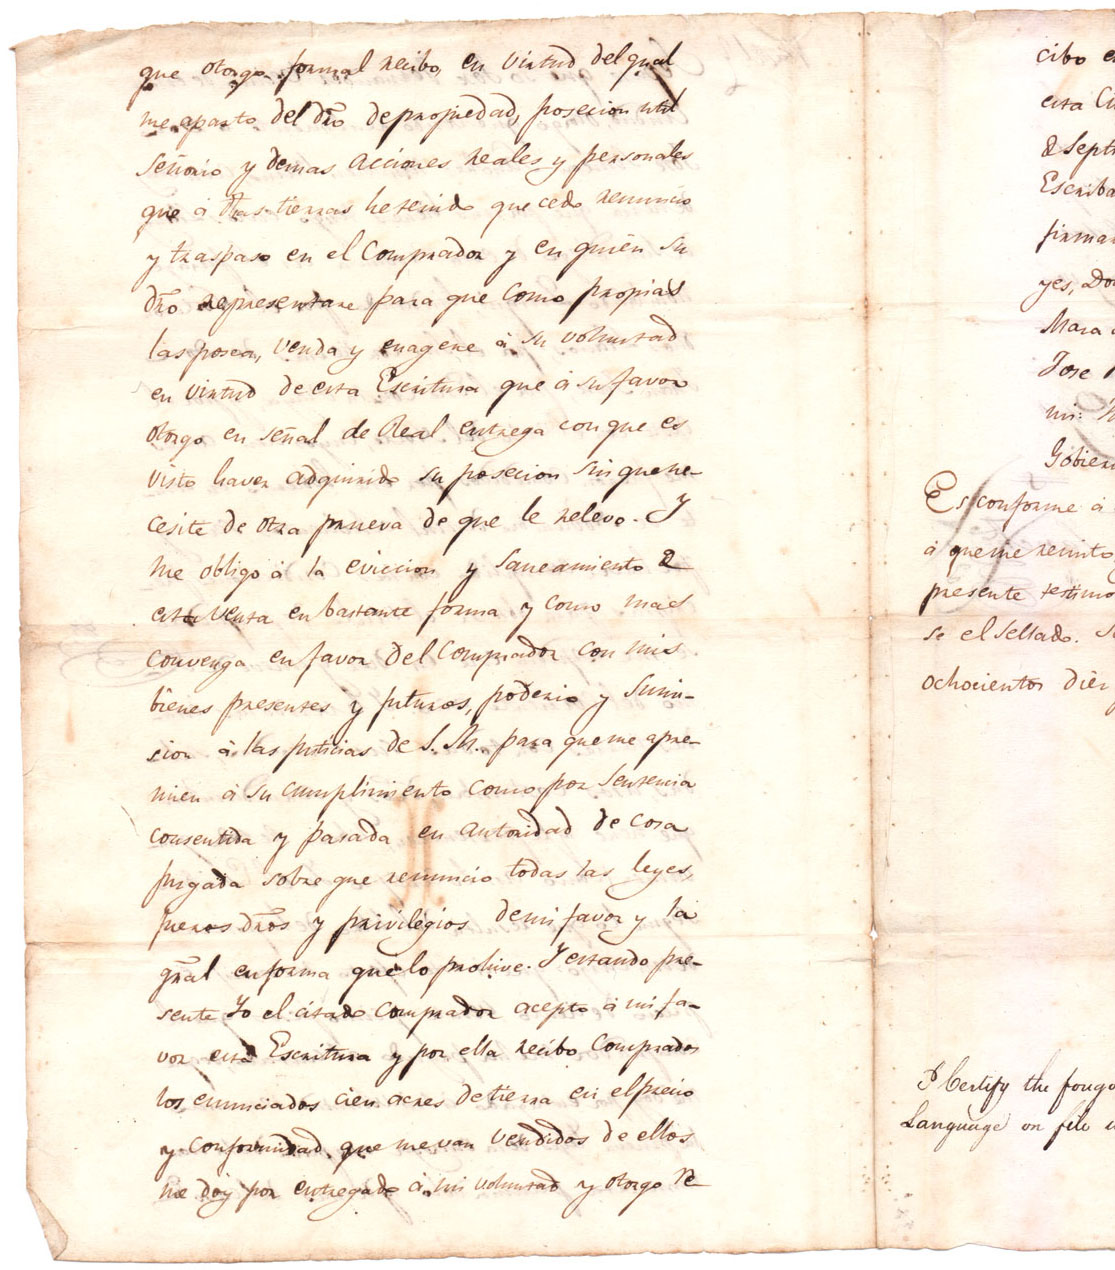 que otorgo formal recibo, en virtud del qual
me aparto del dr̃o de propiedad, posecion util
señorio y demas acciones reales y personales
que á dhãs tierras he tenido que cedo renuncio
y traspaso en el Comprador y en quien su
dr̃o representare para que como propias
las posea, venda y enagene á su voluntad
en virtud de esta Escritura que á su favor
otorgo en señal de Real entrega con que es
visto haver adquirido su posecion sin que ne-
cesite de otra prueva de que le relevo. Y
me obligo á la eviccion y saneamiento de
esta Venta en bastante forma y como mas
convenga en favor del Comprador con mis
bienes presentes y futuros, poderio y sumi-
cion á las justicias de S. M. para que me apre-
mien á su cumplimiento como por Sentencia
consentida y pasada en autoridad de cosa
juzgada sobre que renuncio todas las leyes,
fueros dr̃os y privilegios de mi favor y la
gr̃al en forma que lo prohive. Y estando pre-
sente Yo el citado Comprador acepto á mi fa-
vor esta Escritura y por ella recibo Comprados
los enunciados cien acres de tierra en el precio
y conformidad que me van vendidos de ellos
me doy por entregado á mi voluntad y otorgo re-
cibo e
esta Ci
de Septi
Escriba
firmar
yes, Do
Mara
Jose
mi:
Gobier
Es conforme á
á que me remito
presente testimo
se el Sellado.
ochocientos diez y
I Certify the forgo
Language on file